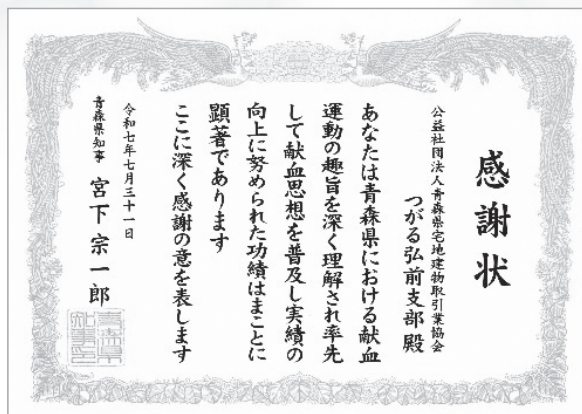 感謝状
公益社団法人青森県宅地建物取引業協会
つがる弘前支部殿
あなたは青森県における献血
運動の趣旨を深く理解され率先
して献血思想を普及し実績の
向上に努められた功績はまことに
顕著であります
ここに深く感謝の意を表します
令和七年七月三十一日
青森県知事 宮下宗一郎